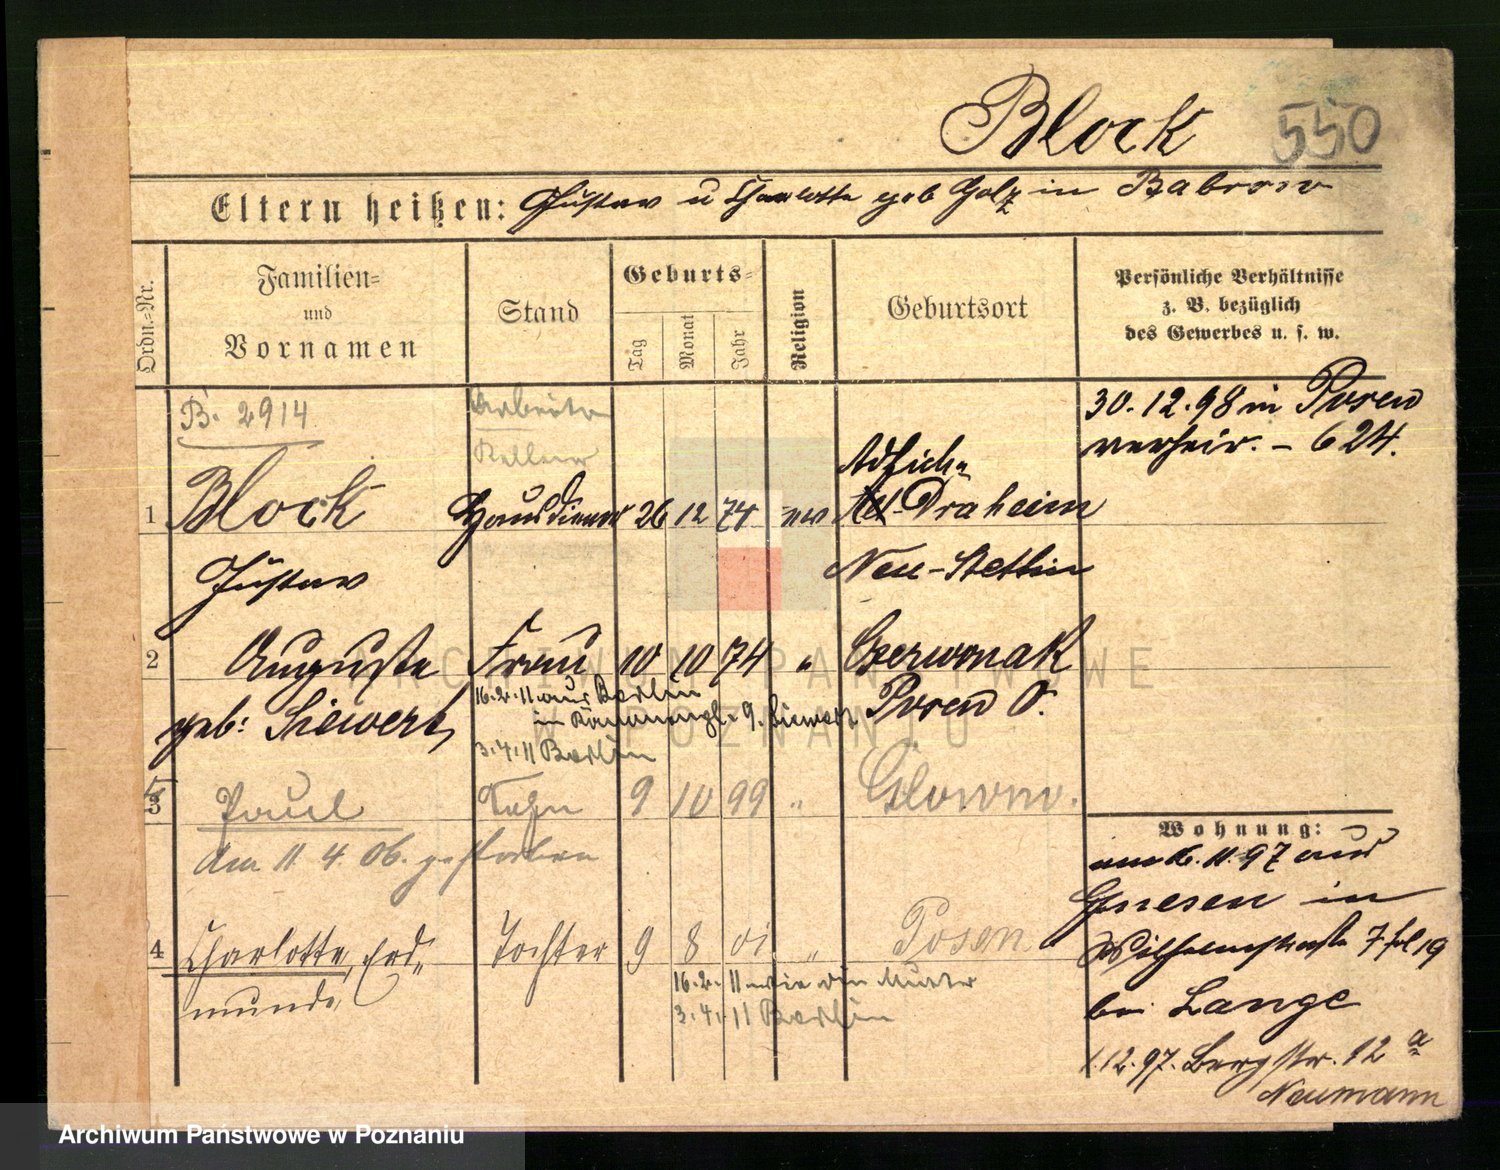 Block
550
Eltern heißen: Gustav u Charlotte geb Golz in Babrow
Ordn.-Nr.
Familien-
und
Vornamen
Stand
Geburts-
Tag
Monat
Jahr
Religion
Geburtsort
Persönliche Verhältnisse
z. B. bezüglich
des Gewerbes u. s. w.
B. 2914
Arbeiter
Kellner
30.12.98 in Posen
verheir. - 624.
Adlich-
1 Block Hausdiener 26 12 74 ev Alt-Draheim
Gustav Neu-Stettin
2 Auguste Frau 10 10 74 " Czerwonak
geb: Siewert Posen O.
16.2.11 aus Berlin
in 9. Siewert
3.4.11 Berlin
3 Paul Sohn 9 10 99 " Glowno.
Am 11 4 06. gestorben
4 Charlotte, Erd- Tochter 9 8 01 " Posen
munde
16.2.11 wie die Mutter
3.4.11 Berlin
Wohnung:
am 6.11.97 aus
Gnesen in
Wilhelmstraße 7 fol 19
bei Lange
1.12.97. Bergstr. 12 a
Neumann
ARCHIWUM PAŃSTWOWE
W POZNANIU
Archiwum Państwowe w Poznaniu